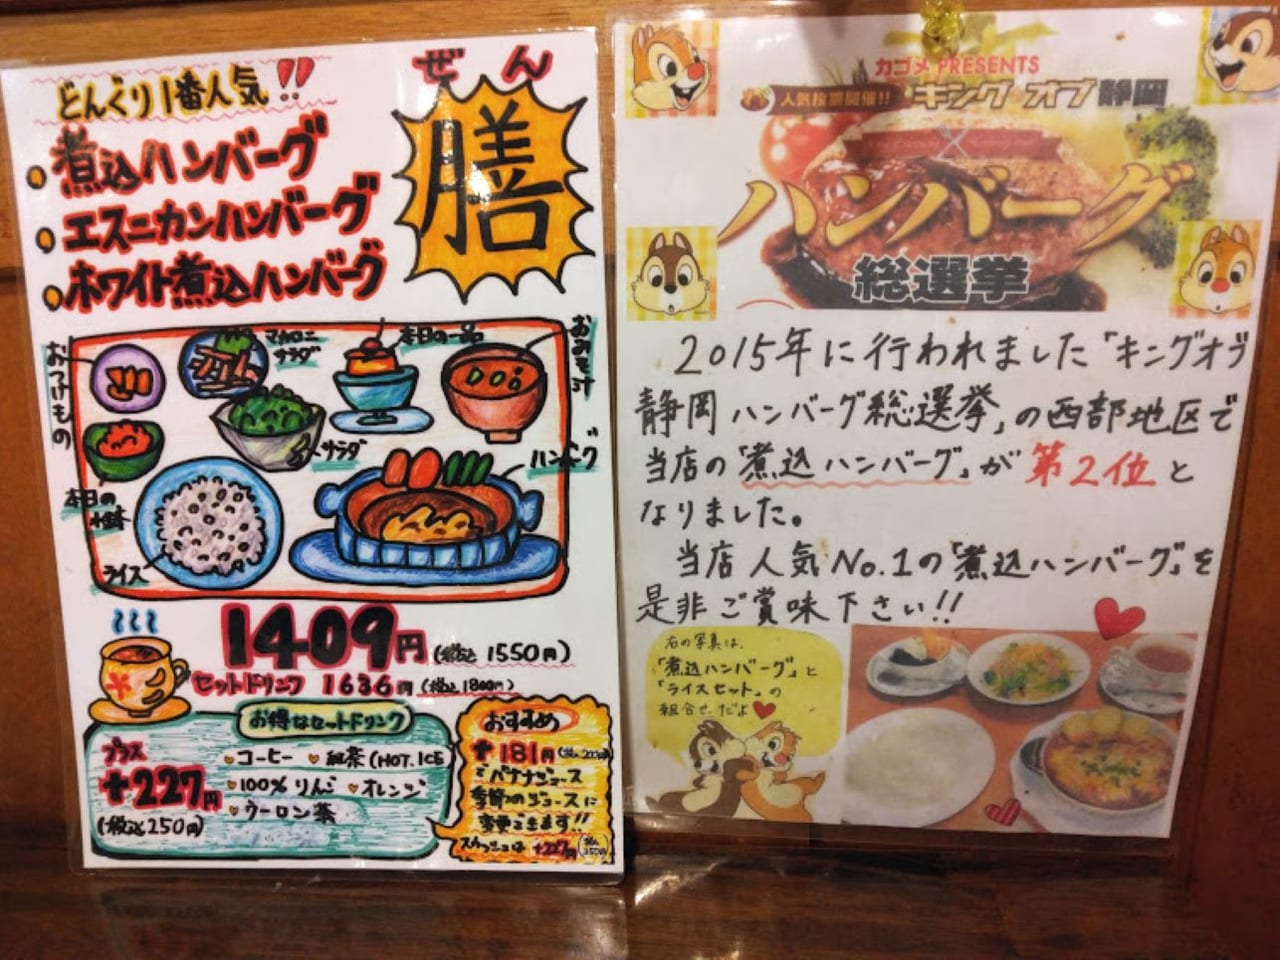 どんぐり1番人気!!
ぜん
膳
煮込ハンバーグ
エスニカンハンバーグ
ホワイト煮込ハンバーグ
おつけもの
マカロニ
サラダ
本日の一品
おみそ汁
サラダ
ハンバーグ
本日の
小鉢
ライス
1409円(税込1550円)
セットドリンク 1636円(税込1800円)
お得なセットドリンク
プラス
+227円
(税込250円)
コーヒー 紅茶(HOT.ICE
100%りんご オレンジ
ウーロン茶
おすすめ
+181円(税込200円)
でバナナジュース
季節のジュースに
変更できます!!
スカッシュは +227円(税込250円)
カゴメ PRESENTS
人気投票開催!! キング オブ 静岡
ハンバーグ
総選挙
2015年に行われました「キングオブ
静岡 ハンバーグ総選挙」の西部地区で
当店の「煮込ハンバーグ」が第2位と
なりました。
当店人気No.1の「煮込ハンバーグ」を
是非ご賞味下さい!!
右の写真は、
「煮込ハンバーグ」と
「ライスセット」の
組合せだよ